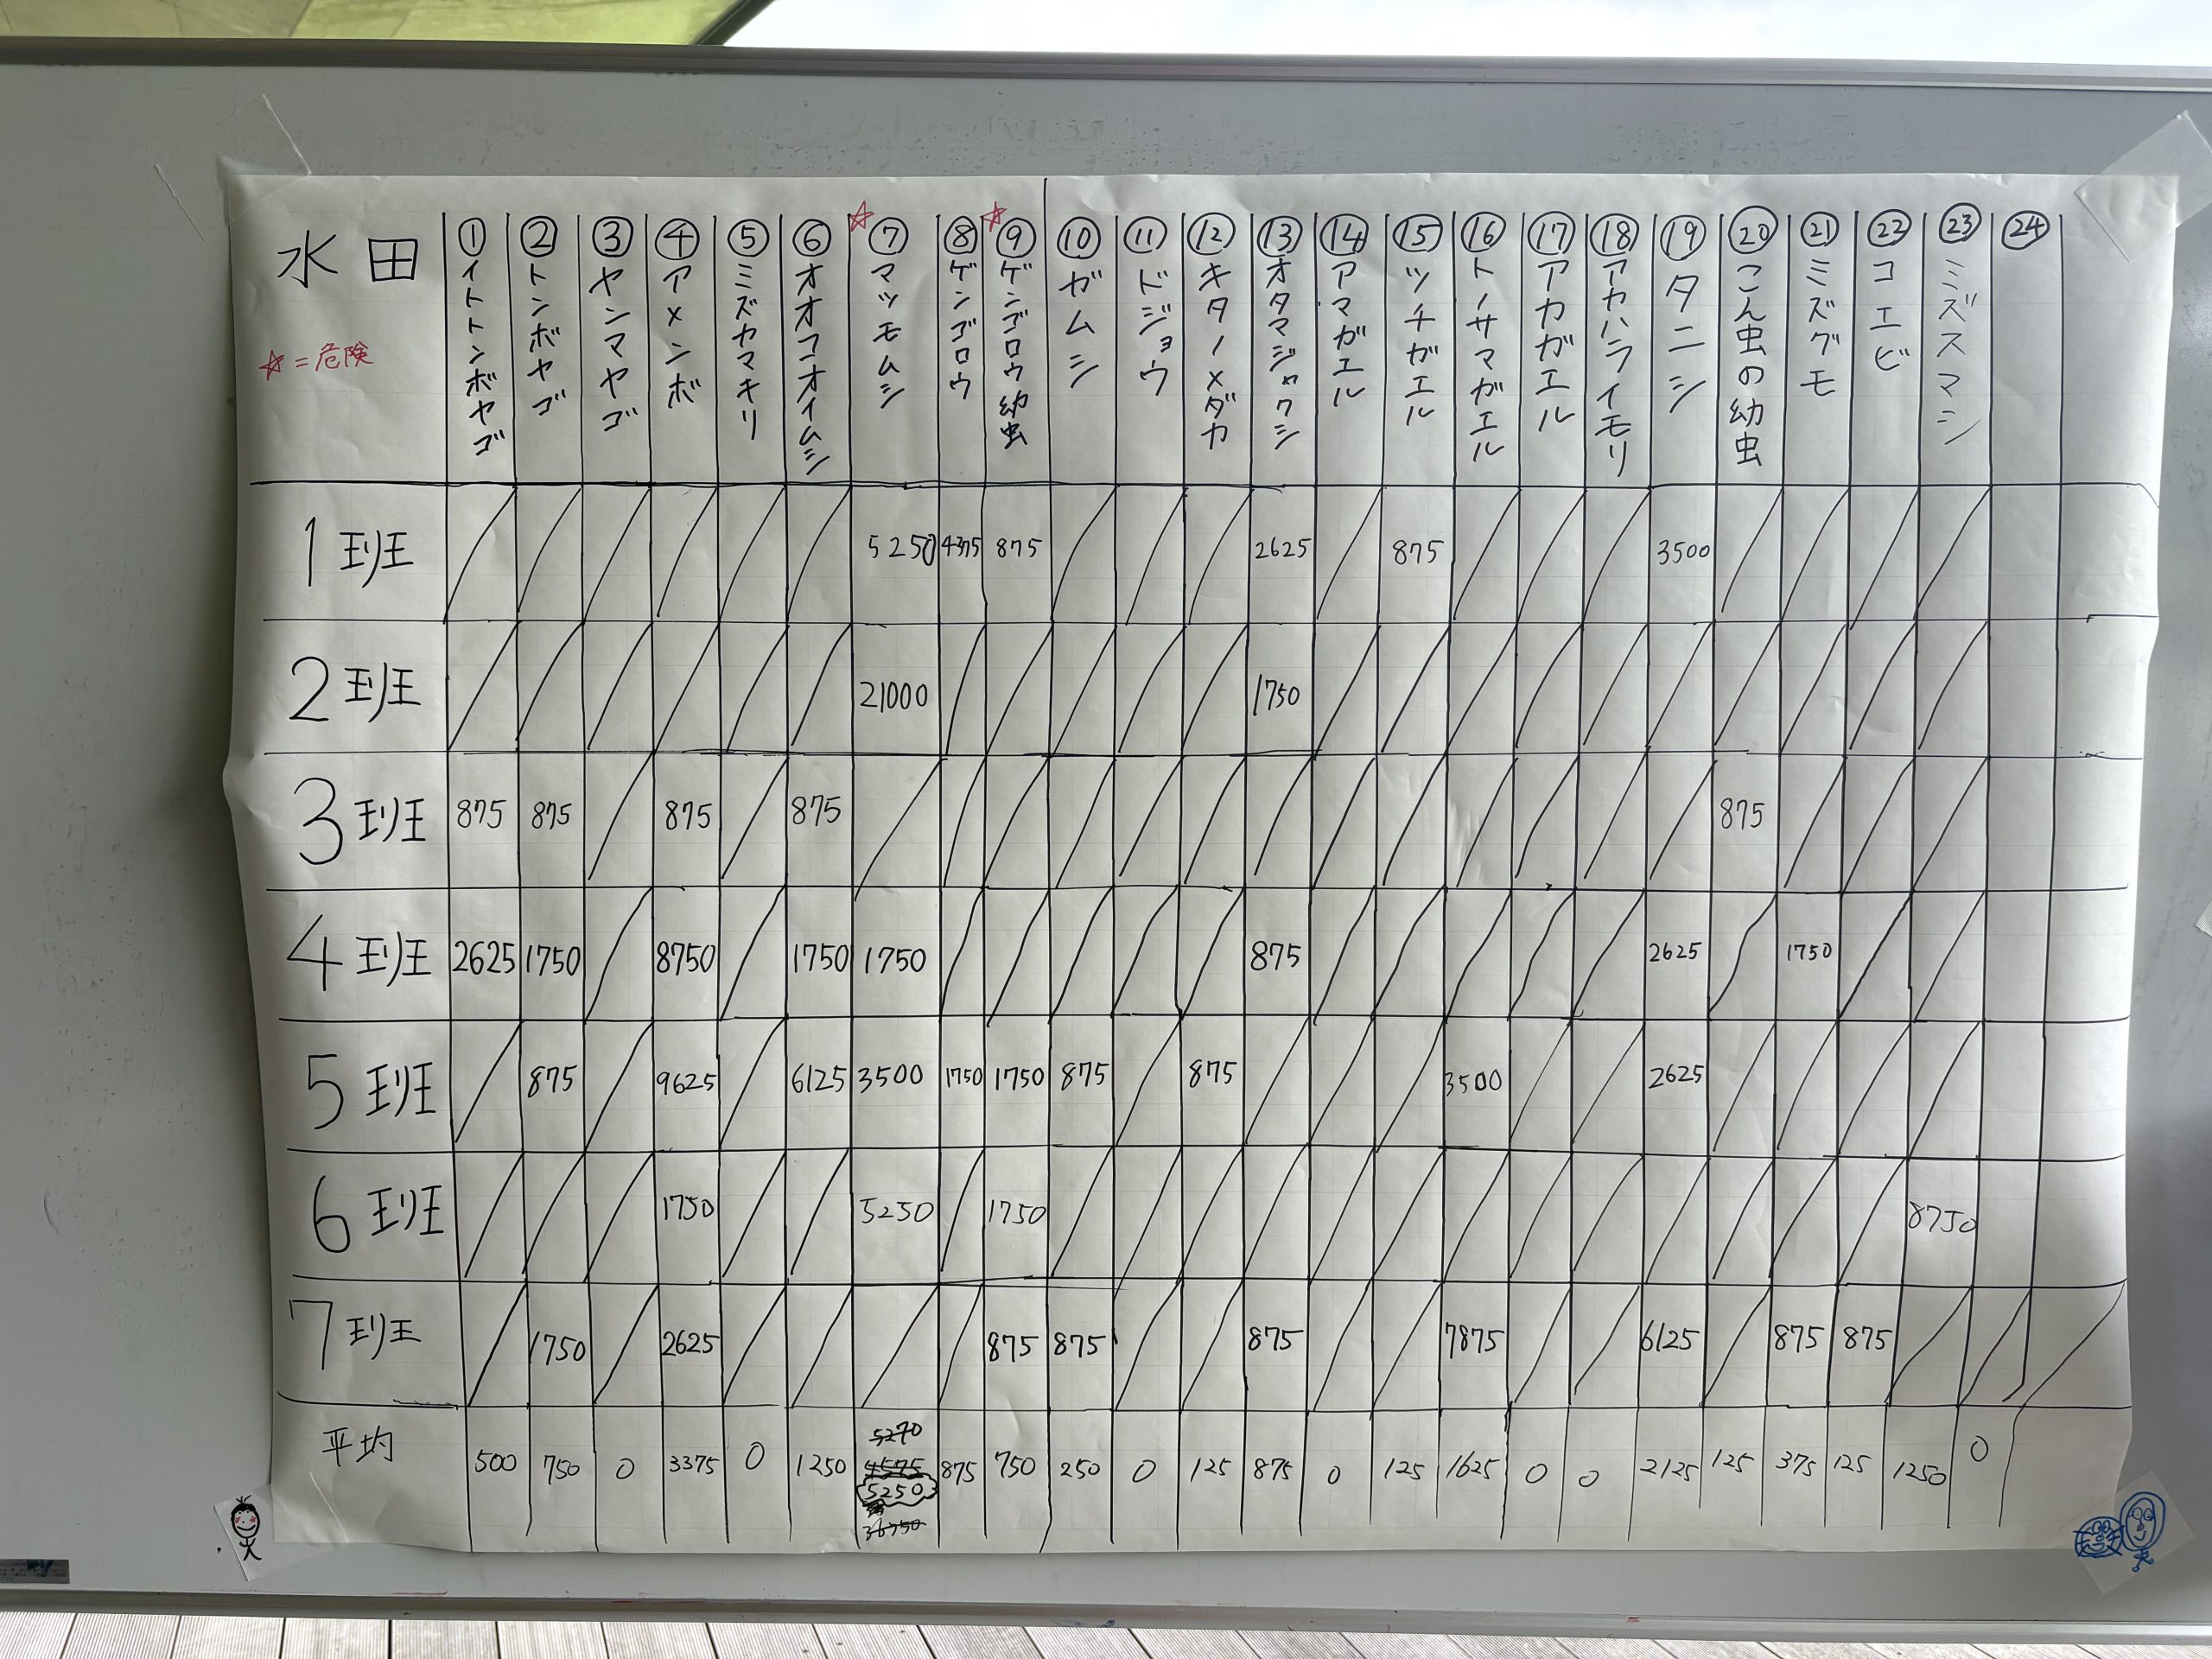 水田 ① ② ③ ④ ⑤ ⑥ ☆⑦ ⑧ ☆⑨ ⑩ ⑪ ⑫ ⑬ ⑭ ⑮ ⑯ ⑰ ⑱ ⑲ ⑳ ㉑ ㉒ ㉓ ㉔
☆=危険
イトトンボヤゴ
トンボヤゴ
ヤンマヤゴ
アメンボ
ミズカマキリ
オオコオイムシ
マツモムシ
ゲンゴロウ
ゲンゴロウ幼虫
ガムシ
ドジョウ
キタノメダカ
オタマジャクシ
アマガエル
ツチガエル
トノサマガエル
アカガエル
アカハライモリ
タニシ
こん虫の幼虫
ミズグモ
コエビ
ミズスマシ
1班 5250 4375 875 2625 875 3500
2班 21000 1750
3班 875 875 875 875 875
4班 2625 1750 8750 1750 1750 875 2625 1750
5班 875 9625 6125 3500 1750 1750 875 875 3500 2625
6班 1750 5250 1750 8750
7班 1750 2625 875 875 875 7875 6125 875 875
平均 500 750 0 3375 0 1250 5250 875 750 250 0 125 875 0 125 1625 0 0 2125 125 375 125 1250 0